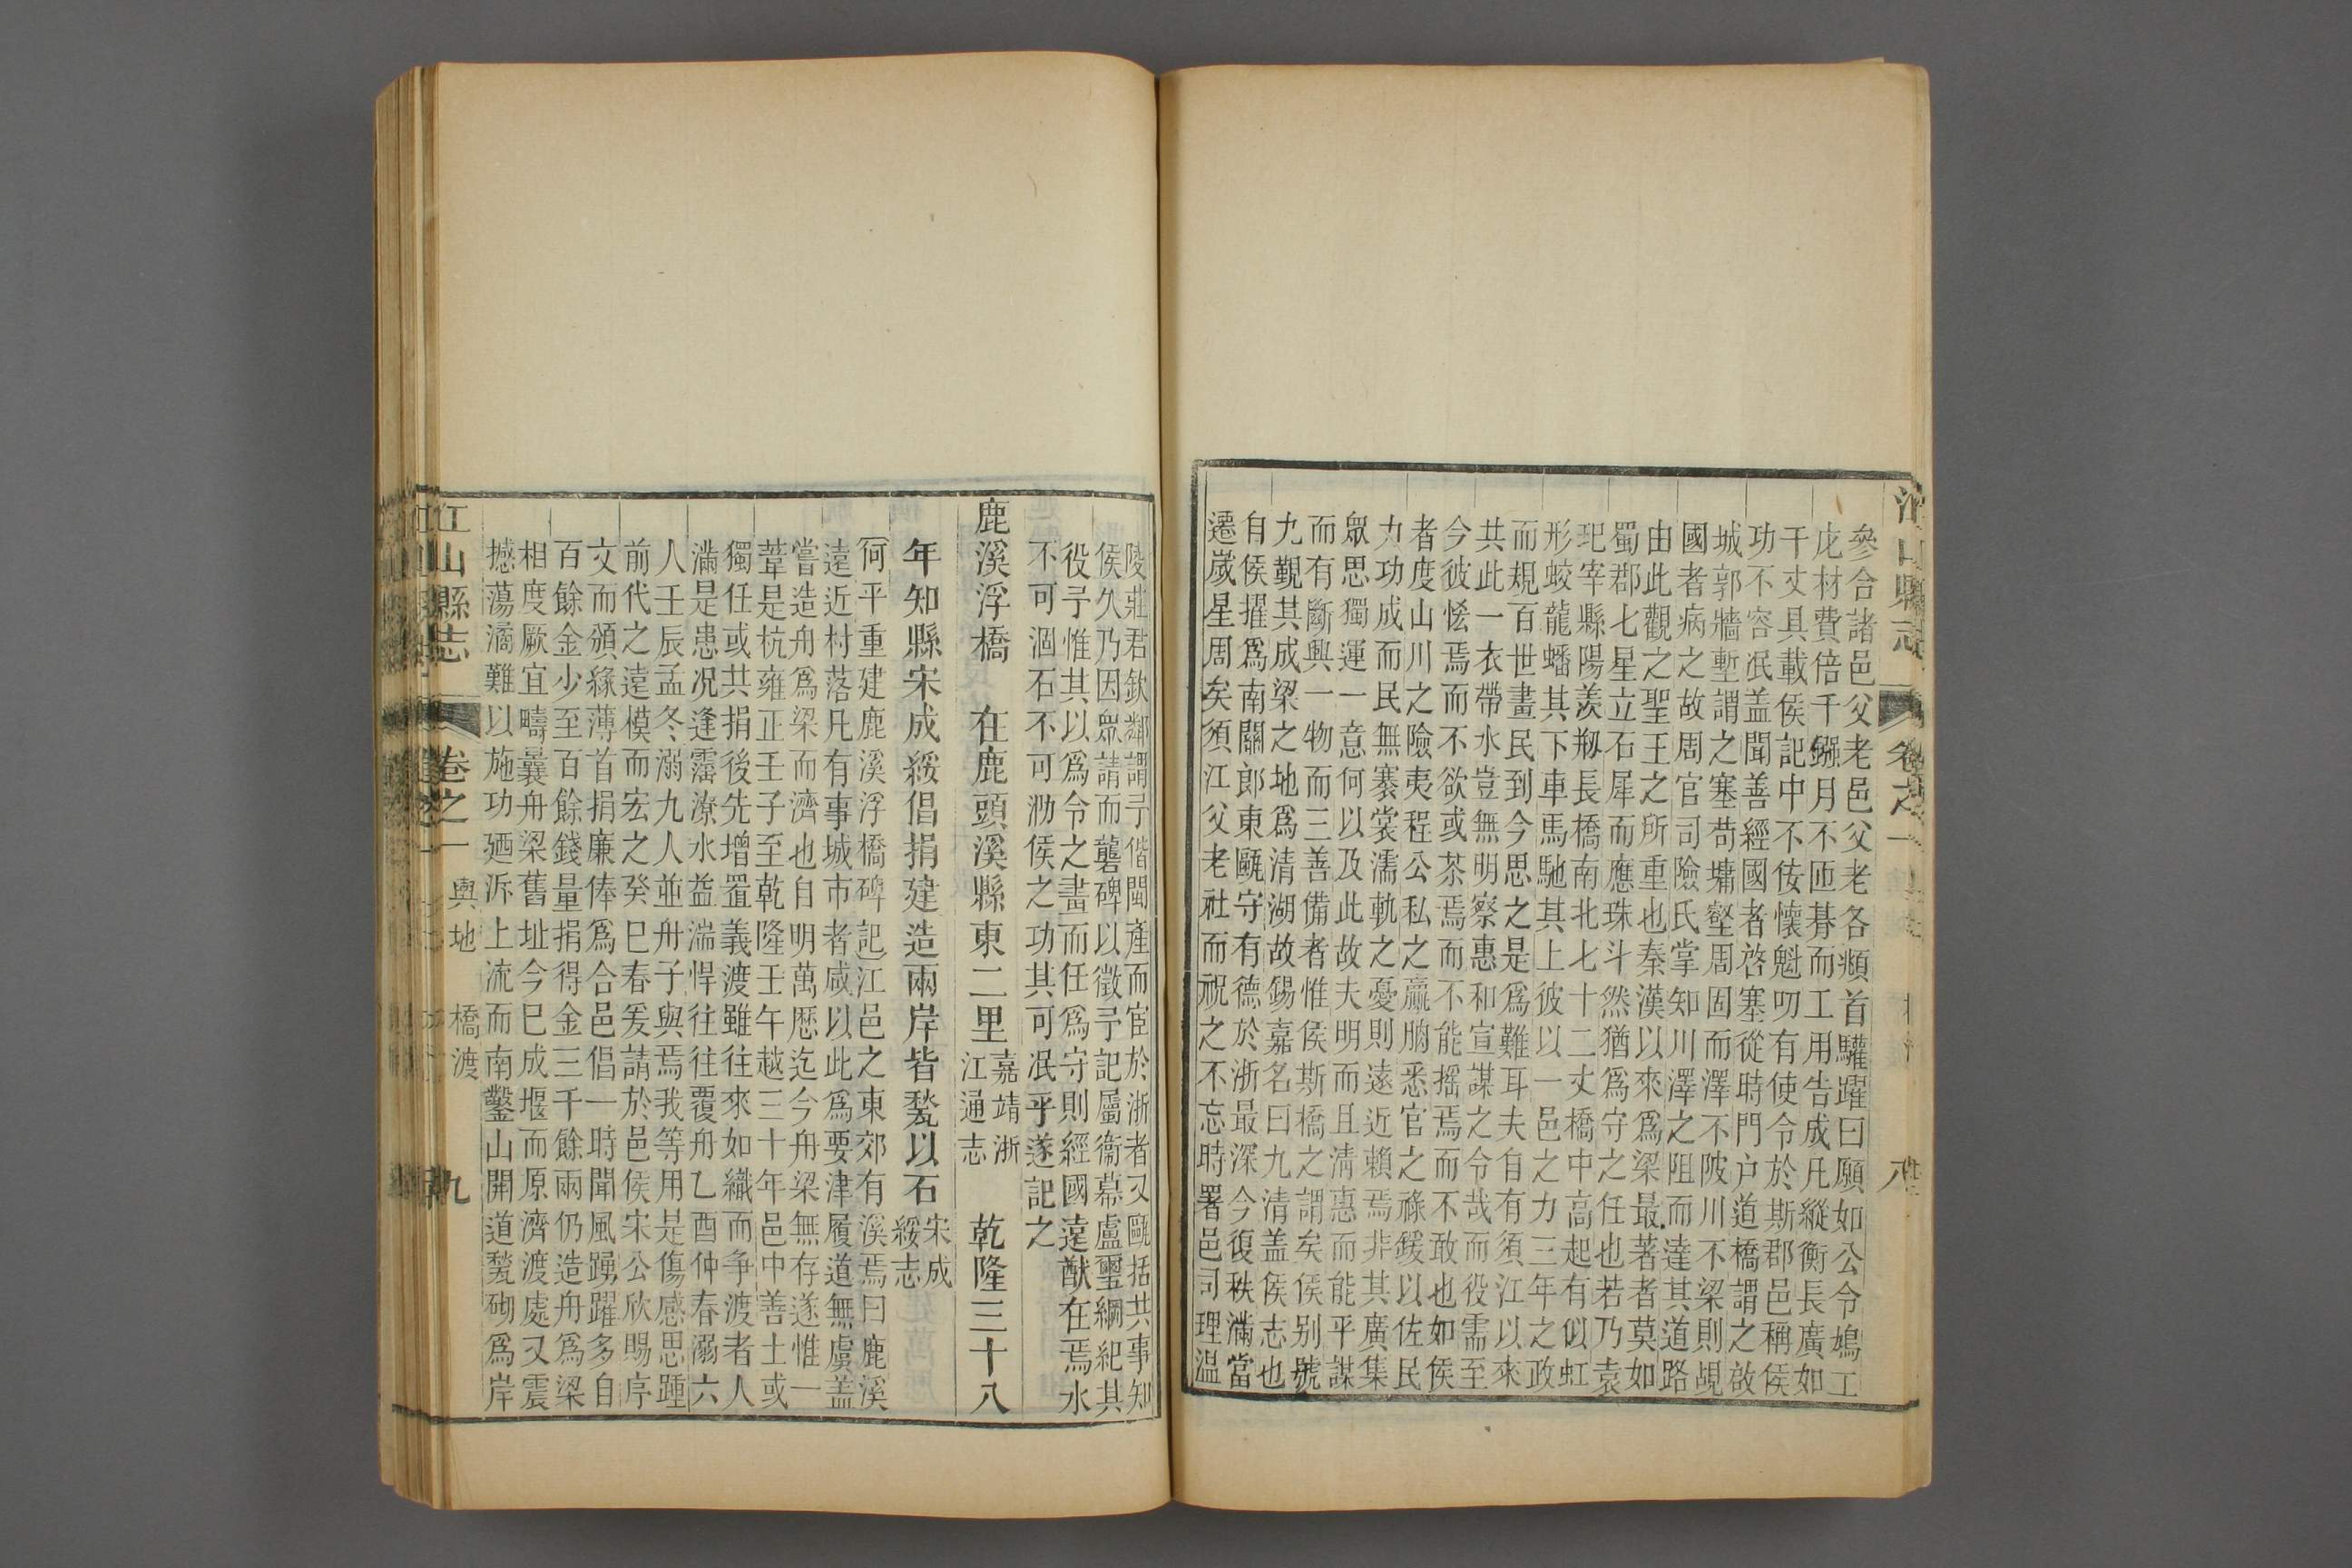 江山縣志
卷之一
參合諸邑父老邑父老各頫首驩躍曰願如公令鳩工
庀材費倍千鏹月不匝朞而工用告成凡縱衡長廣如
干丈具載侯記中不佞懷魁叨有使令於斯郡邑稱侯
功不容泯盖聞善經國者啓塞從時門户道橋謂之啟
城郭牆塹謂之塞苟墉壑周固而澤不陂川不梁則覘
國者病之故周官司險氏掌知川澤之阻而達其道路
由此觀之聖王之所重也秦漢以來爲梁最著者莫如
蜀郡七星立石犀而應珠斗然猶爲守之任也若乃袁
玘宰縣陽羨剏長橋南北七十二丈橋中高起有似虹
形蛟龍蟠其下車馬馳其上彼以一邑之力三年之政
而規百世畫民到今思之是爲難耳夫自有須江以來
共此一衣帶水豈無明察惠和宣謀之令哉而役需至
今彼恡焉而不欲或茶焉而不能摇焉而不敢也如侯
者度山川之險夷程公私之贏朒悉官之祿鍰以佐民
力功成而民無褰裳濡軌之憂則遠近賴焉非其廣集
眾思獨運一意何以及此故夫明而且凊惠而能平謀
而有斷興一物而三善備者惟侯斯橋之謂矣侯别號
九覲其成梁之地爲清湖故錫嘉名曰九清盖侯志也
自侯擢爲南關郎東甌守有德於浙最深今復秩滿當
遷嵗星周矣須江父老社而祝之不忘時署邑司理温
陵莊君欽鄰謂予偕閩產而宦於浙者又甌括共事知
侯久乃因眾請而礱碑以徵予記屬衞幕盧璽綱紀其
役予惟其以爲令之畫而任爲守則經國遠猷在焉水
不可涸石不可泐侯之功其可泯乎遂記之
鹿溪浮橋　在鹿頭溪縣東二里嘉靖浙江通志　乾隆三十八
年知縣宋成綏倡捐建造兩岸皆甃以石宋成綏志
何平重建鹿溪浮橋碑記江邑之東郊有溪焉曰鹿溪
遠近村落凡有事城市者咸以此爲要津履道無虞盖
嘗造舟爲梁而濟也自明萬厯迄今舟梁無存遂惟一
葦是杭雍正壬子至乾隆壬午越三十年邑中善士或
獨任或共捐後先增置義渡雖往來如織而争渡者人
滿是患况逢霪潦水益湍悍往往覆舟乙酉仲春溺六
人壬辰孟冬溺九人並舟子與焉我等用是傷感思踵
前代之遠模而宏之癸巳春爰請於邑侯宋公欣賜序
文而頒緣薄首捐廉俸爲合邑倡一時聞風踴躍多自
百餘金少至百餘錢量捐得金三千餘兩仍造舟爲梁
相度厥宜疇曩舟梁舊址今巳成堰而原濟渡處又震
撼蕩潏難以施功廼泝上流而南鑿山開道甃砌爲岸
江山縣志
卷之一　輿地　橋渡
九